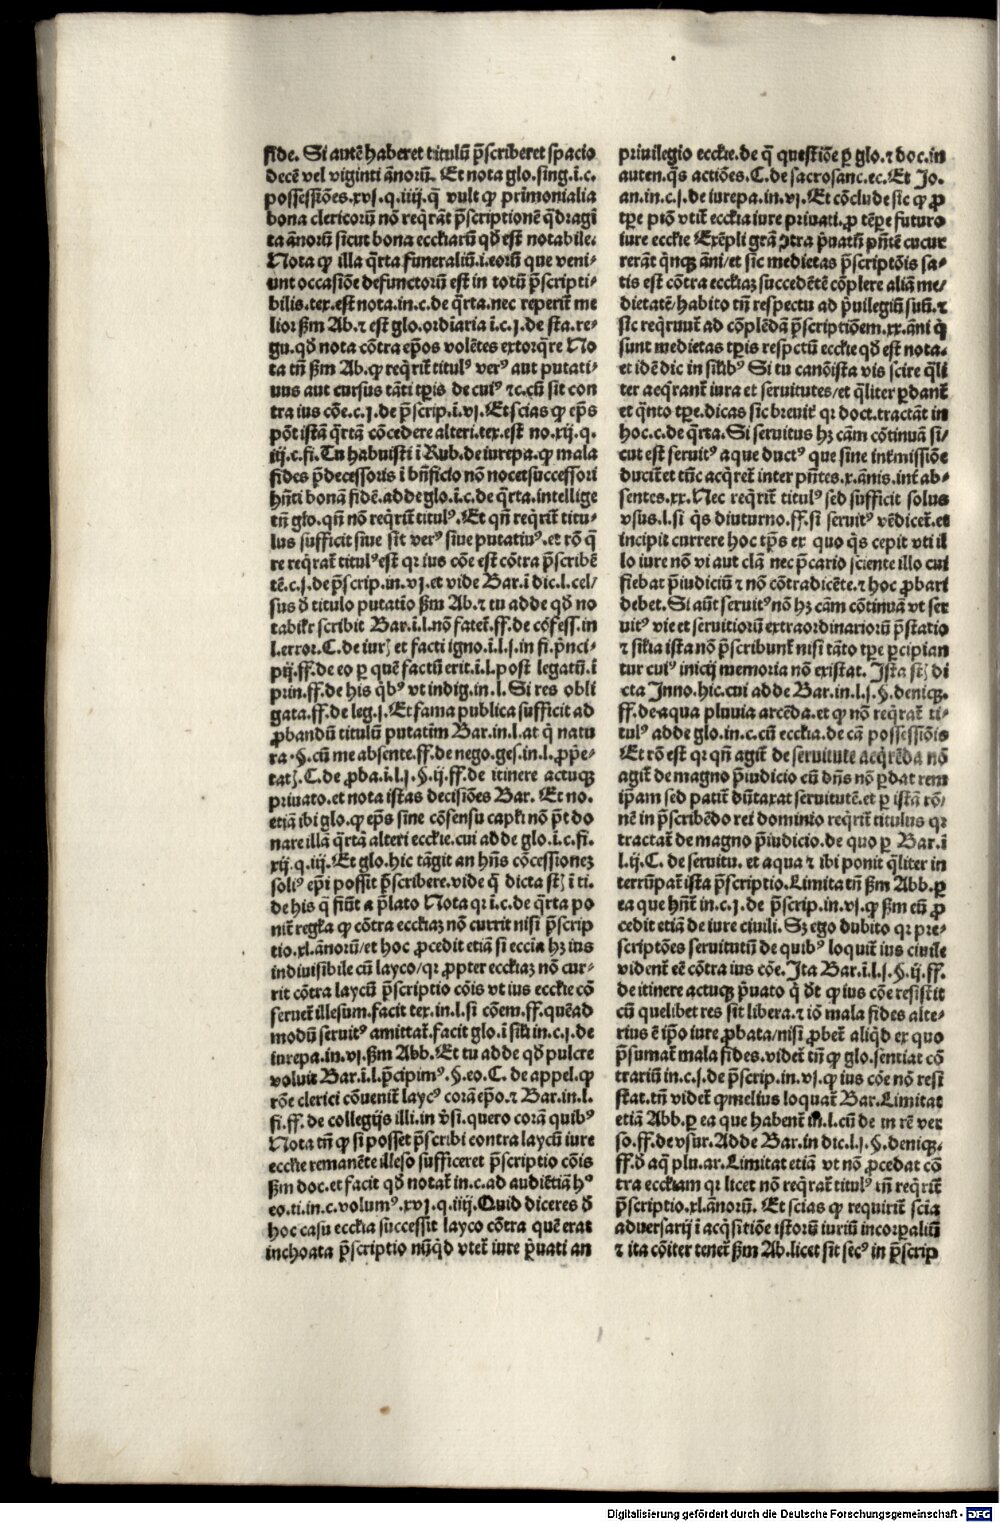 fide. Si autē haberet titulū p̄scriberet spacio
decē vel viginti ānorū. Et nota glo. sing. ī.c.
possessiōes. xvj. q. iiij. q̄ vult ꝙ primonialia
bona clericorū nō reqrāt p̄scriptionē q̄dragī
ta ānorū sicut bona ecclīarū qđ est notabile.
Nota ꝙ illa q̄rta funeraliū. i. eorū que veni⸗
unt occasiōe defunctorū est in totū p̄scripti⸗
bilis. tex. est nota. in. c. de q̄rta. nec reperit̄ me
lior ẜm Ab. ⁊ est glo. ordīaria ī. c. j. de sta. re⸗
gu. qđ nota cōtra ep̄os volētes extorq̄re No
ta tn̄ ẜm Ab. ꝙ reqrit̄ titulꝰ verꝰ aut putati⸗
uus aut cursus tāti tp̄is de cuiꝰ ⁊c. cū sit con
tra ius cōe. c. j. de p̄scrip. ī. vj. Et scias ꝙ ep̄s
pōt istā q̄rtā cōcedere alteri. tex. est no. xij. q.
iij. c. fi. Tu habuisti ī Rub. de iurepa. ꝙ mala
fides p̄decessoris ī bn̄ficio nō nocet successori
hn̄ti bonā fidē. adde glo. ī. c. de q̄rta. intellige
tn̄ glo. qn̄ nō reqrit̄ titulꝰ. Et qn̄ reqrit̄ titu⸗
lus sufficit siue sit verꝰ siue putatiuꝰ. et rō q̄
re reqrat̄ titulꝰ est qr ius cōe est cōtra p̄scribē
tē. c. j. de p̄scrip. in. vj. et vide Bar. ī dic. l. cel⸗
sus đ titulo putatio ẜm Ab. ⁊ tu adde qđ no
tabilr̄ scribit Bar. ī. l. nō fatet̄. ff. de cōfess. in
l. error. C. de iurꝭ et facti igno. ī. l. j. in fi. p̄nci⸗
pij. ff. de eo per quē factū erit. ī. l. post legatū. ī
prin. ff. de his q̄bꝰ vt indig. in. l. Si res obli
gata. ff. de leg. j. Et fama publica sufficit ad
ꝓbandū titulū putatim Bar. in. l. at q̄ natu
ra. §. cū me absente. ff. de nego. ges. in. l. ꝓp̄e⸗
tatꝭ. C. de ꝓba. ī. l. j. §. ij. ff. de itinere actuqꝫ
priuato. et nota istas decisiōes Bar. Et no.
etiā ibi glo. ꝙ ep̄s sine cōsensu capli nō p̄t do
nare illā q̄rtā alteri ecclie. cui adde glo. ī. c. fi.
xij. q. iij. Et glo. hic tāgit an hn̄s cōcessionez
soliꝰ ep̄i possit p̄scribere. vide q̄ dicta sꝭ ī ti.
de his q̄ fiūt a p̄lato Nota qr ī. c. de q̄rta po
nit̄ regla ꝙ cōtra ecclīaz nō currit nisi p̄scrip
tio. xl. ānorū/ et hoc ꝓcedit etiā si eccīa hꝫ ius
indiuisibile cū layco/ qr ꝓpter ecclīaz nō cur⸗
rit cōtra laycū p̄scriptio cōis vt ius ecclie cō
seruet̄ illesum. facit tex. in. l. si cōem. ff. quēad
modū seruitꝰ amittat̄. facit glo. ī sili in. c. j. de
iurepa. in. vj. ẜm Abb. Et tu adde qđ pulcre
voluit Bar. ī. l. p̄cipimꝰ. §. eo. C. de appel. ꝙ
rōe clerici cōuenit̄ laycꝰ corā ep̄o. ⁊ Bar. in. l.
fi. ff. de collegijs illi. in v̄si. quero corā quibꝰ
Nota tn̄ ꝙ si posset p̄scribi contra laycū iure
ecclie remanēte illeso sufficeret p̄scriptio cōis
ẜm doc. et facit qđ notat̄ in. c. ad audiētiā hꝰ
eo. ti. in. c. volumꝰ. xvj. q. iiij. Quid diceres đ
hoc casu ecclīa successit layco cōtra quē erat
inchoata p̄scriptio nūqđ vtet̄ iure p̄uati an
priuilegio ecclie. de q̄ questiōe ꝑ glo. ⁊ doc. in
auten. q̄s actiōes. C. de sacrosanc. ec. Et Jo.
an. in. c. j. de iurepa. in. vj. Et cōclude sic ꝙ ꝓ
tp̄e p̄io vtit̄ ecclīa iure priuati. ꝓ tēpe futuro
iure ecclie Exēpli grā ↄtra p̄uatū pn̄tē cucur
rerāt q̄nqꝫ āni/ et sic medietas p̄scriptōis sa⸗
tis est cōtra ecclīaz succedētē cōplere aliā me/
dietatē habito tn̄ respectu ad p̄uilegiū suū. ⁊
sic reqrunt̄ ad cōplēdā p̄scriptiōem. xx. āni q̇
sunt medietas tp̄is respctū ecclie qđ est nota.
et idē dic in silibꝰ Si tu canōista vis scire q̄li
ter aeqrant̄ iura et seruitutes/ et q̄liter ꝑdant̄
et q̄nto tp̄e. dicas sic breuit̄ qr doct. tractāt in
hoc. c. de q̄rta. Si seruitus hꝫ cām cōtinuā si⸗
cut est seruitꝰ aque ductꝰ que sine int̄missiōe
ducit̄ et tūc acqret̄ inter pn̄tes. x. ānis. int̄ ab⸗
sentes. xx. Nec reqrit̄ titulꝰ sed sufficit solus
vsus. l. si q̄s diuturno. ff. si seruitꝰ vēdicet̄. et
incipit currere hoc tp̄s ex quo q̄s cepit vti il
lo iure nō vi aut clā nec p̄cario sciente illo cui
fiebat p̄iudiciū ⁊ nō cōtradicēte. ⁊ hoc ꝓbari
debet. Si aūt seruitꝰ nō hꝫ cām cōtinuā vt ser
uitꝰ vie et seruitiorū extraordinariorū p̄statio
⁊ silia ista nō p̄scribunt̄ nisi tāto tp̄e ꝑcipian
tur cuiꝰ inicij memoria nō existat. Ista sꝭ di
cta Inno. hic. cui adde Bar. in. l. j. §. deniqꝫ.
ff. de aqua pluuia arcēda. et ꝙ nō reqrat̄ ti⸗
tulꝰ adde glo. in. c. cū ecclīa. de cā possessiōis
Et rō est qr qn̄ agit̄ de seruitute acq̄rēda nō
agit̄ de magno p̄iudicio cū dn̄s nō ꝑdat rem
ip̄am sed patit̄ dūtaxat seruitutē. et ꝑ istā rō/
nē in p̄scribēdo rei dominio reqrit̄ titulus qr
tractat̄ de magno p̄iudicio. de quo ꝑ Bar. ī
l. ij. C. de seruitu. et aqua ⁊ ibi ponit q̄liter in
terrūpat̄ ista p̄scriptio. Limita tn̄ ẜm Abb. ꝑ
ea que hn̄t̄ in. c. j. de p̄scrip. in. vj. ꝙ ẜm eū ꝓ
cedit etiā de iure ciuili. Sꝫ ego dubito qr pre⸗
scriptōes seruitutū de quibꝰ loquit̄ ius ciuile
vident̄ eē cōtra ius cōe. Ita Bar. ī. l. j. §. ij. ff.
de itinere actuqꝫ p̄uato q̇ đt ꝙ ius cōe resistit
cū quelibet res sit libera. ⁊ iō mala fides alte⸗
rius ē ip̄o iure ꝓbata/ nisi ꝓbet̄ aliqđ ex quo
p̄sumat̄ mala fides. videt̄ tn̄ ꝙ glo. sentiat cō
trariū in. c. j. de p̄scrip. in. vj. ꝙ ius cōe nō resi
stat. tn̄ videt̄ ꝙ melius loquat̄ Bar. Limitat
etiā Abb. ꝑ ea que habent̄ in. l. cū de in rē ver
so. ff. de vsur. Adde Bar. in dic. l. j. §. deniqꝫ.
ff. đ aq̄ plu. ar. Limitat etiā vt nō ꝓcedat cō
tra ecclīam qr licet nō reqrat̄ titulꝰ tn̄ reqrit̄
p̄scriptio. xl. ānorū. Et scias ꝙ requirit̄ scīa
aduersarij ī acq̄sitiōe istorū iuriū incorꝑaliū
⁊ ita cōiter tenet̄ ẜm Ab. licet sit secꝰ in p̄scrip
Digitalisierung gefördert durch die Deutsche Forschungsgemeinschaft - DFG